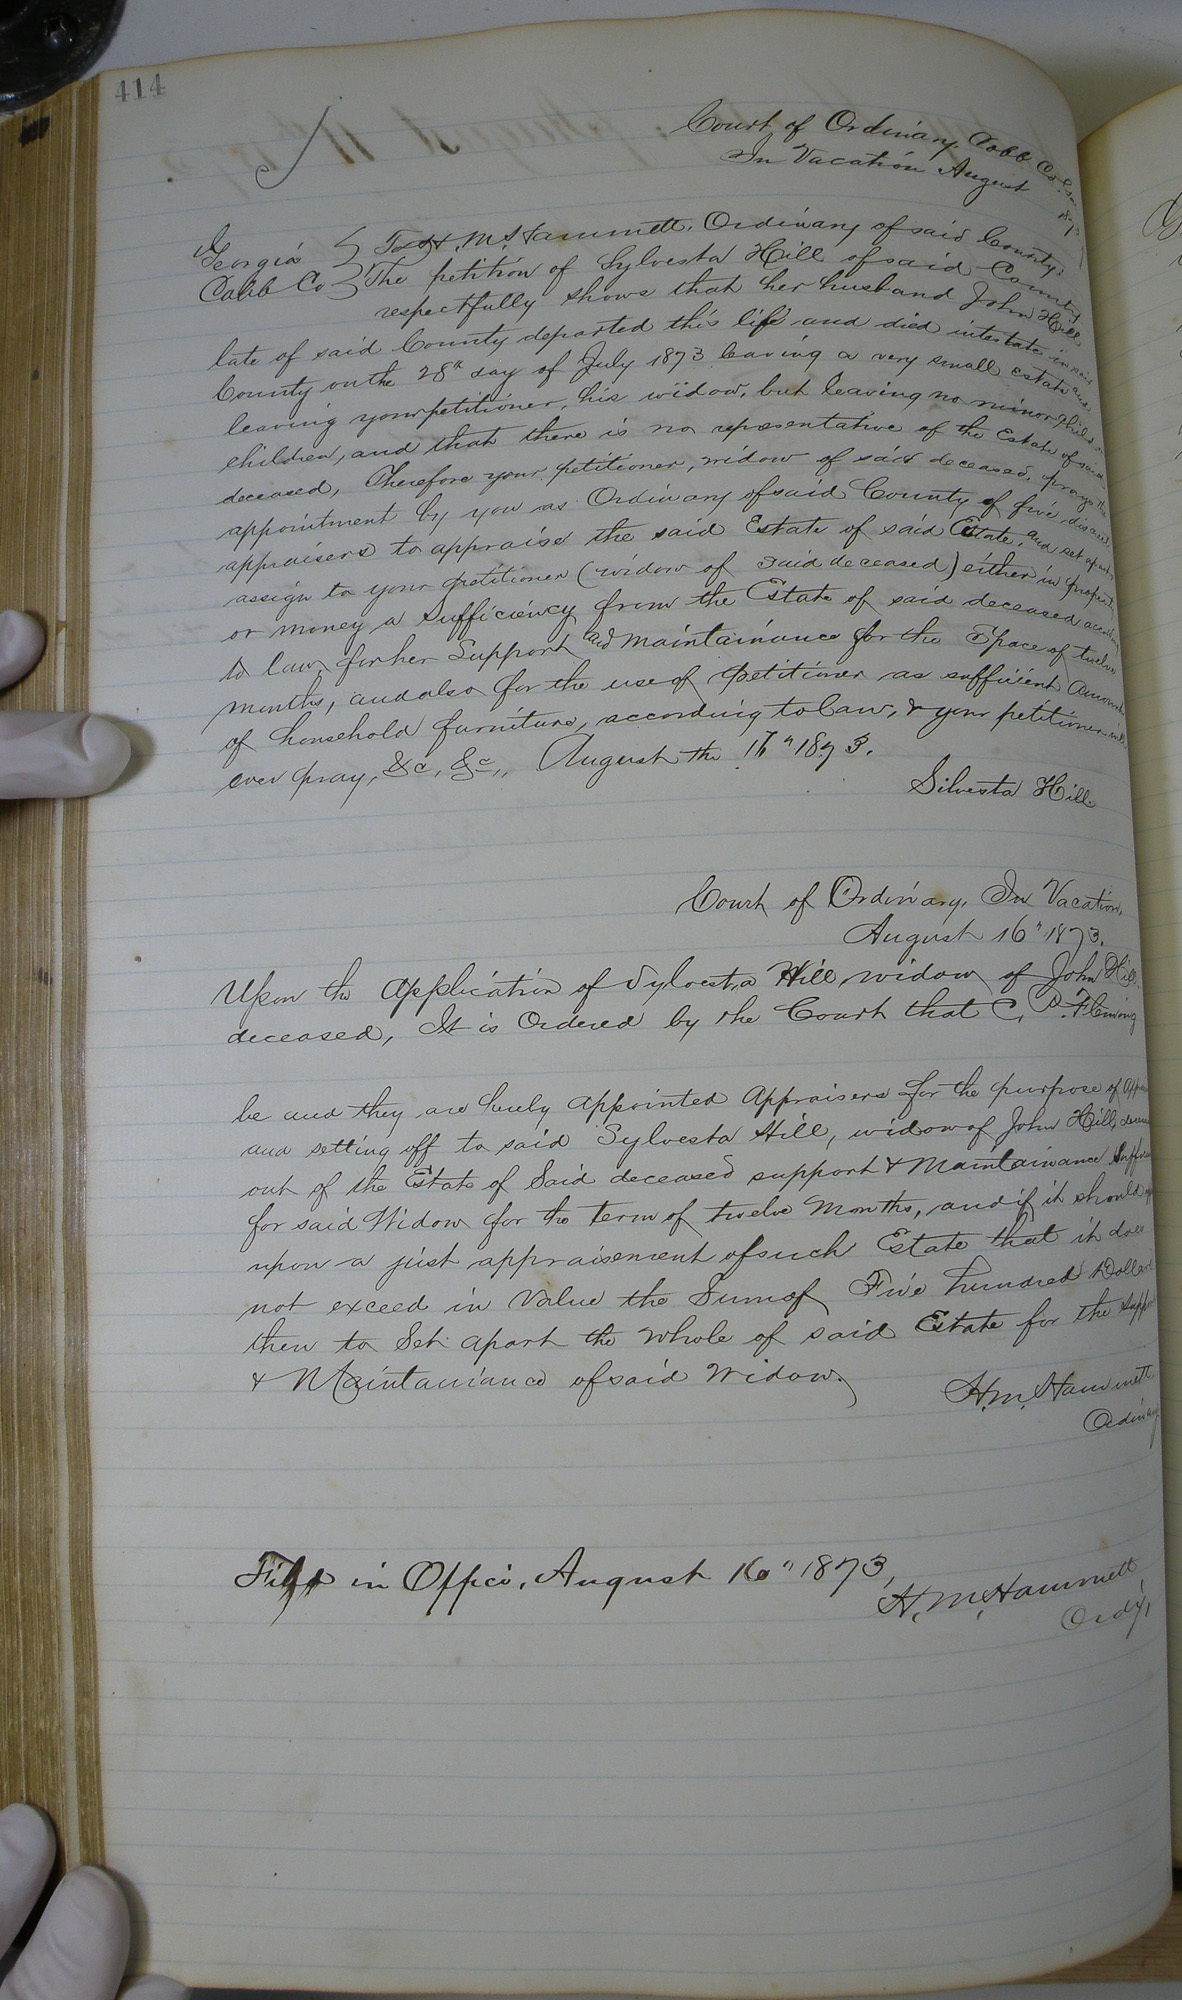 414
Court of Ordinary, Cobb Co.
In Vacation August
Georgia } To H. M. Hammett, Ordinary of said County:
Cobb Co } The petition of Sylvesta Hill of said County
respectfully shows that her husband John Hill
late of said County departed this life and died intestate in said
County on the 28th day of July 1873 leaving a very small estate and
leaving your petitioner, his widow, but leaving no minor child or
children, and that there is no representative of the Estate of said
deceased, Therefore your petitioner, widow of said deceased, prays the
appointment by you as Ordinary of said County of five discreet
appraisers to appraise the said Estate of said Estate, and set apart &
assign to your petitioner (widow of said deceased) either in property
or money a sufficiency from the Estate of said deceased according
to law for her Support and maintainance for the Space of twelve
months, and also for the use of petitioner as sufficient amount
of household furniture, according to law, & your petitioner will
ever pray, &c, &c,, August the 1873.
Silvesta Hill
Court of Ordinary, In Vacation,
August 16" 1873.
Upon the application of Sylvesta Hill, widow of John Hill
deceased, It is Ordered by the Court that C. P. Fleming
be and they are hereby appointed Appraisers for the purpose of
and setting off to said Sylvesta Hill, widow of John Hill,
out of the Estate of Said deceased support & Maintainance
for said Widow for the term of twelve Months, and if it should
upon a just appraisement of such Estate that it does
not exceed in Value the Sum of Five hundred Dollars
then to Set apart the whole of said Estate for the support
& Maintaniance of said Widow.
H. M. Hammett
Ordinary
Filed in Office, August 16" 1873,
H. M. Hammett
Ordy,